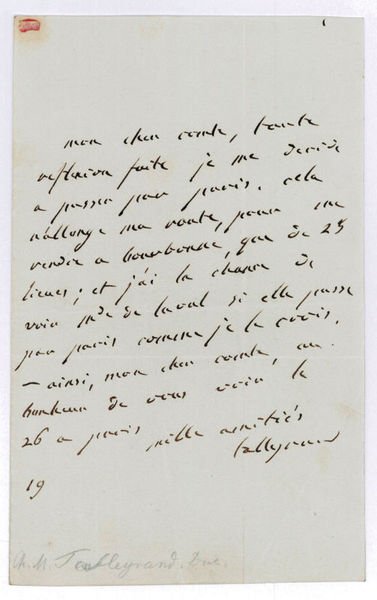 mon cher comte, toute
reflexion faite je me decide
a passer par paris. cela
n'allonge ma route, pour me
rendre a bourbonne, que de 25
lieues; et j'ai la chance de
voir Mde de laval si elle passe
par paris comme je le crois.
— ainsi, mon cher comte, au
bonheur de vous voir le
26 a paris mille amitiés
talleyrand
19
Ch. M. Talleyrand.